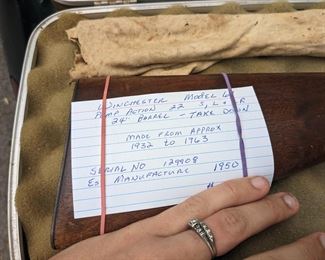 WINCHESTER MODEL
PUMP ACTION 22 S, L & R
24" BARREL - TAKE DOWN
MADE FROM APPROX
1932 TO 1963
SERIAL NO 129908
MANUFACTURE 1950